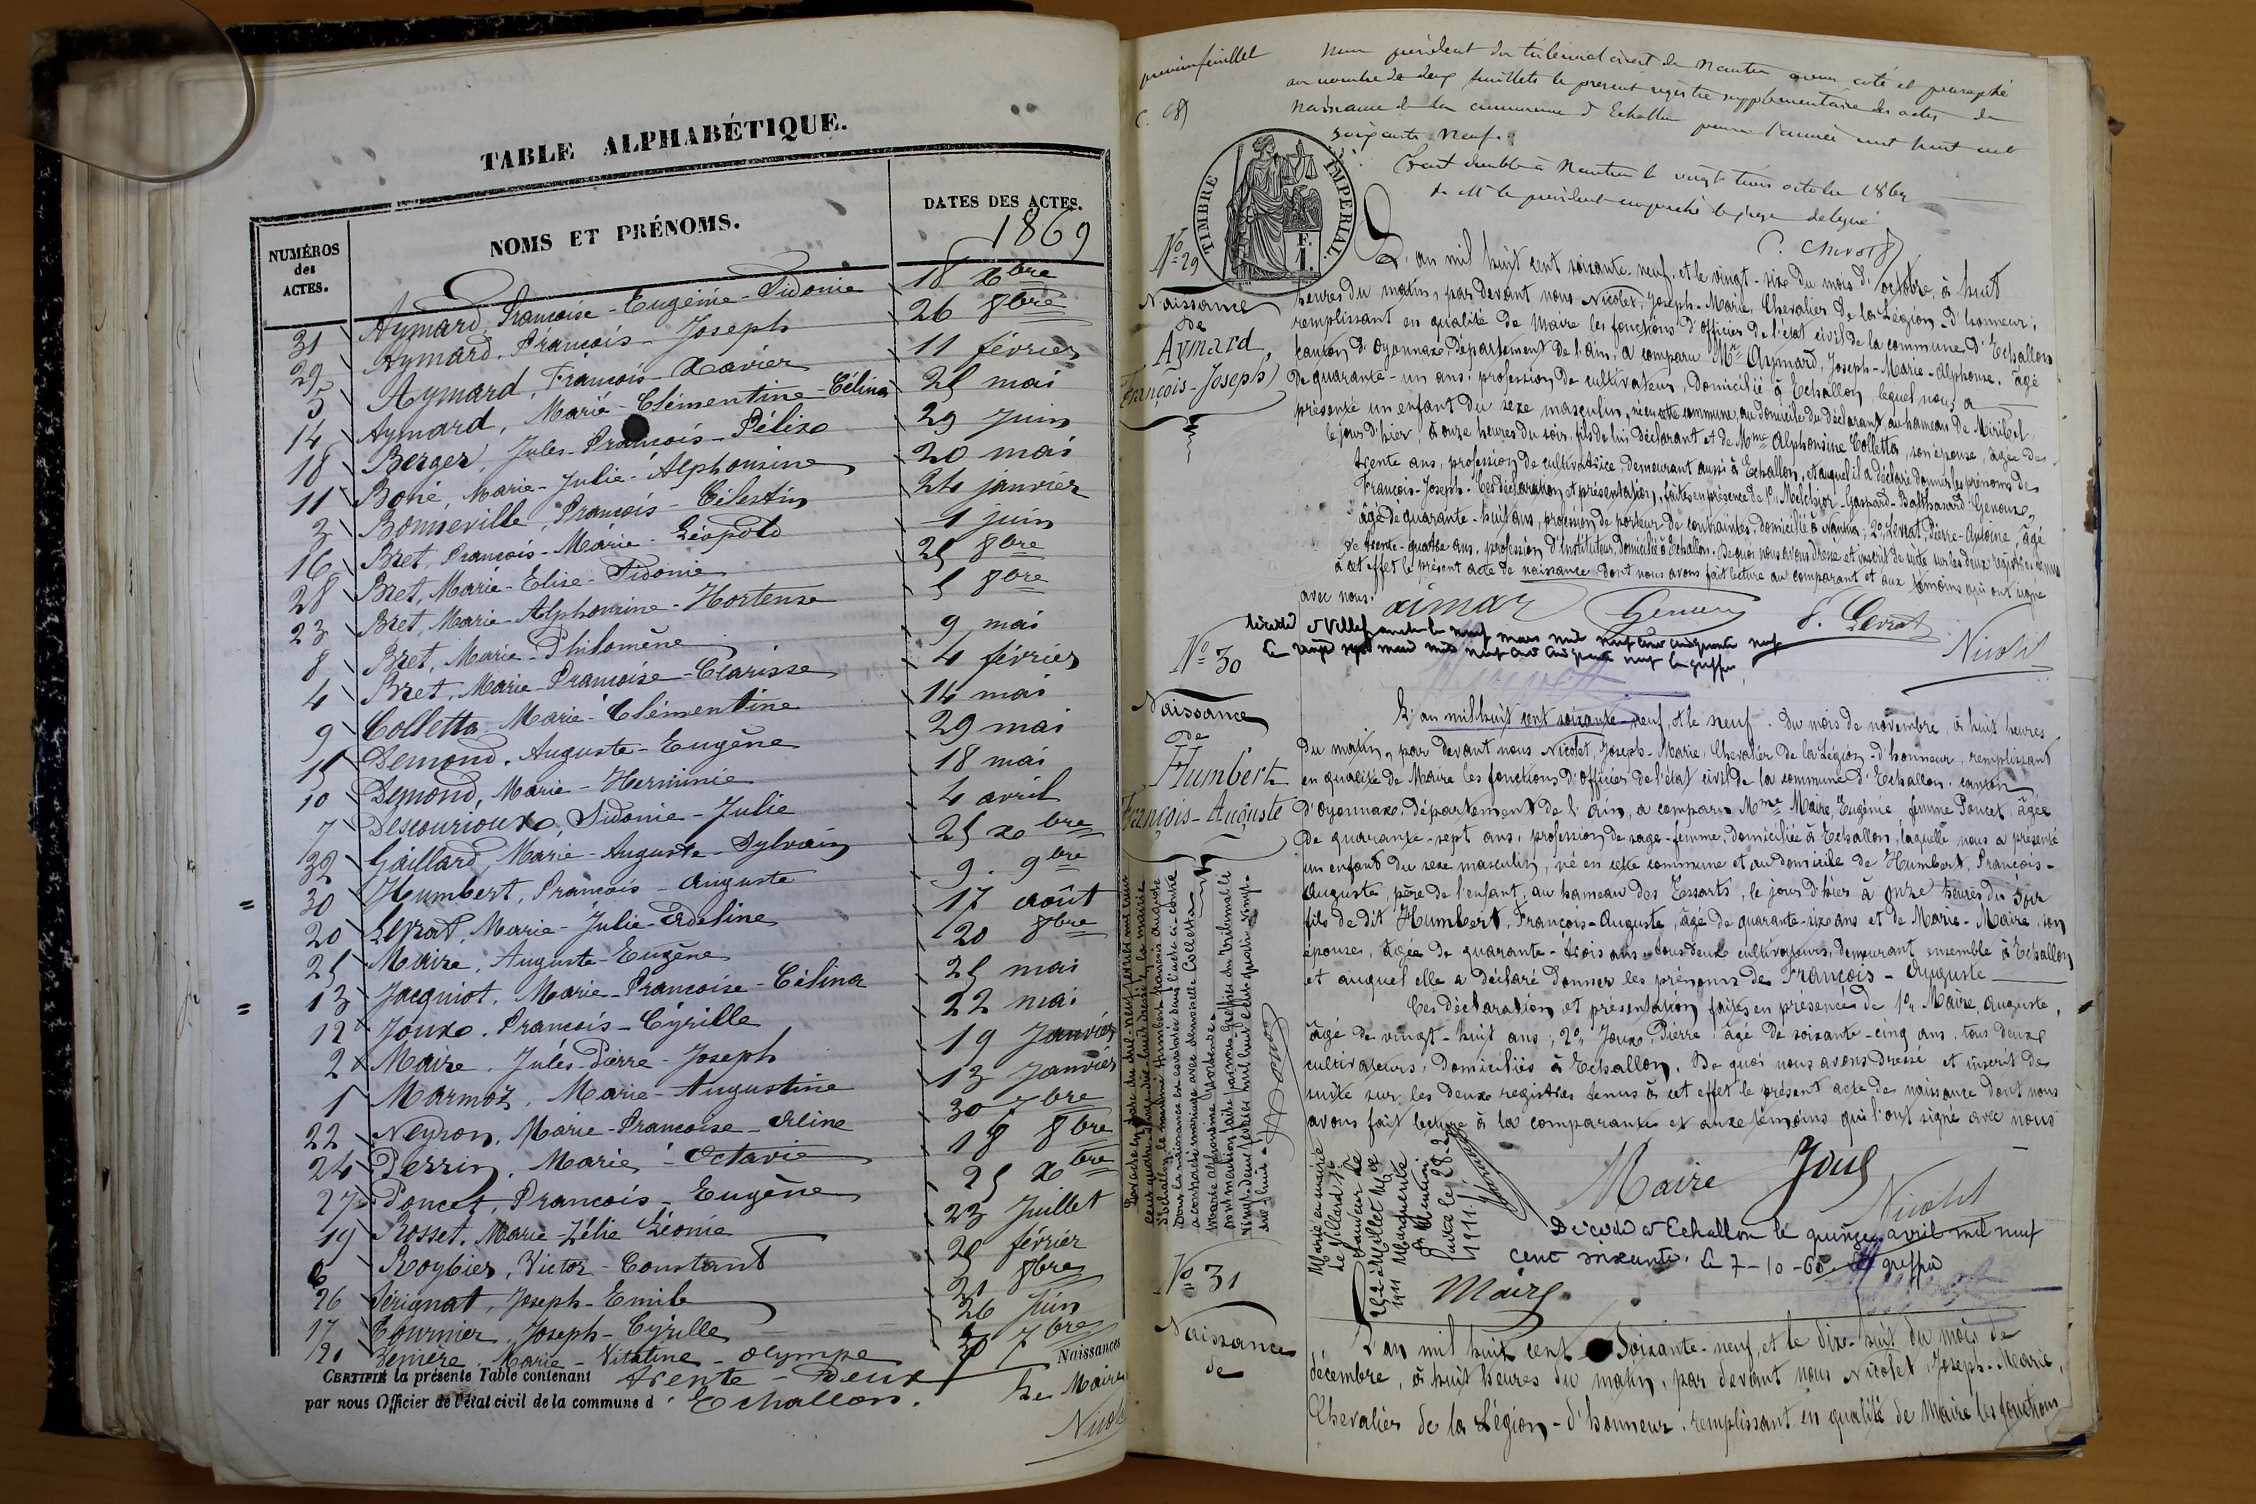 TABLE ALPHABÉTIQUE.
NUMÉROS des ACTES.
NOMS ET PRÉNOMS.
DATES DES ACTES.
1869
31 Aymard, Francoise-Eugénie-Sidonie 18 Xbre
29 Aymard, François-Joseph 26 8bre
5 Aymard, François-Xavier 11 février
14 Aymard, Marie-Clémentine-Célina 25 mai
18 Berger, Jules-François-Félix 29 Juin
11 Boné, Marie-Julie-Alphonsine 20 mai
3 Bonneville, François-Célestin 24 janvier
16 Bret, François-Marie-Léopold 1 juin
28 Bret, Marie-Elise-Sidonie 25 8bre
23 Bret, Marie-Alphonsine-Hortense 5 8bre
8 Bret, Marie-Philomène 9 mai
4 Bret, Marie-Françoise-Clarisse 4 février
9 Colletta Marie-Clémentine 14 mai
15 Demond, Auguste-Eugène 29 mai
10 Demond, Marie-Herminie 18 mai
7 Descourioux, Sidonie-Julie 4 avril
32 Gaillard, Marie-Auguste-Sylvain 25 Xbre
30 Humbert, François-Auguste 9. 9bre
20 Levrat, Marie-Julie-Adeline 17 août
25 Maire, Auguste-Eugène 20 8bre
13 Jacquiot, Marie-Francoise-Célina 25 mai
12 Joux, François-Cyrille 22 mai
2 Maire, Jules-Pierre-Joseph 19 Janvier
1 Marmoz, Marie-Augustine 13 Janvier
22 Neyron, Marie-Francoise-Aline 30 7bre
24 Perrin, Marie-Octavie 18 8bre
27 Poncet, François-Eugène 25 Xbre
19 Rosset, Marie-Zélie Léonie 23 Juillet
6 Roybier, Victor-Constant 25 février
26 Sérignat, Joseph-Emile 21 8bre
17 Tournier, Joseph-Cyrille 26 Juin
21 Marie-Vitaline-Olympe 30 7bre
CERTIFIÉ la présente Table contenant trente-deux Naissances
par nous Officier de l'état civil de la commune d'Echallon.
Le Maire
Nicolet
premier feuillet
Nous président du tribunal civil de Nantua avons coté et paraphé
au nombre de deux feuillets le présent registre supplémentaire des actes de
naissance de la commune d'Echallon pour l'année mil huit cent
soixante neuf.
Fait double à Nantua le vingt trois octobre 1869
TIMBRE IMPERIAL.
F. 1.
No 29
Naissance
de
Aymard,
François-Joseph
L'an mil huit cent soixante-neuf, et le vingt-six du mois d'octobre, à huit
heures du matin, par devant nous Nicolet, Joseph-Marie, Chevalier de la Légion-d'honneur,
remplissant en qualité de Maire les fonctions d'officier de l'état civil de la commune d'Echallon
canton d'Oyonnax, Département de l'Ain, a comparu Mr Aymard, Joseph-Marie-Alphonse, âgé
de quarante-un ans, profession de cultivateur, domicilié à Echallon, lequel nous a
présenté un enfant du sexe masculin, né en cette commune, au domicile du déclarant, au hameau de Miribel,
le jour d'hier, à onze heures du soir, fils de lui déclarant et de Mme Alphonsine Colletta, son épouse, âgée de
trente ans, profession de cultivatrice, demeurant aussi à Echallon, et auquel il a déclaré donner les prénoms de
François-Joseph. Ces déclaration et présentation, faites en présence de 1º, Melchior-Gaspard-Balthasard Genoux,
âgé de quarante-huit ans, profession de porteur de contraintes, domicilié à Nantua; 2º, Levrat, Pierre-Antoine, âgé
de trente-quatre ans, profession d'instituteur, domicilié à Echallon. De quoi nous avons dressé et inscrit de suite sur les deux registres tenus
à cet effet le présent acte de naissance dont nous avons fait lecture au comparant et aux témoins qui ont signé
avec nous.
aimar
Levrat
Nicolet
No 30
Naissance
de
Humbert
François-Auguste
L'an mil huit cent soixante-neuf, et le neuf du mois de novembre, à huit heures
du matin, par devant nous Nicolet, Joseph-Marie, Chevalier de la Légion-d'honneur, remplissant
en qualité de Maire les fonctions d'officier de l'état civil de la commune d'Echallon, canton
d'Oyonnax, Département de l'Ain, a comparu Mme Maire, Eugénie, femme Poncet, âgée
de quarante-sept ans, profession de sage-femme, domiciliée à Echallon, laquelle nous a présenté
un enfant du sexe masculin, né en cette commune et au domicile de Humbert, François-
Auguste, père de l'enfant, au hameau des Essarts, le jour d'hier à onze heures du soir
fils de dit Humbert, François-Auguste, âgé de quarante-six ans et de Marie-Maire, son
épouse, âgée de quarante-trois ans, tous deux cultivateurs, demeurant ensemble à Echallon
et auquel elle a déclaré donner les prénoms de François-Auguste
Ces déclaration et présentation faites en présence de 1º Maire, Auguste,
âgé de vingt-huit ans; 2º, Joux, Pierre, âgé de soixante-cinq ans, tous deux
cultivateurs, domiciliés à Echallon. De quoi nous avons dressé et inscrit de
suite sur les deux registres tenus à cet effet le présent acte de naissance dont nous
avons fait lecture à la comparante et aux témoins qui l'ont signé avec nous
Maire Joux
Nicolet
Décédé à Echallon le quinze avril mil neuf
cent soixante. Le 7-10-60 Le greffier
Maire
No 31
Naissance
de
L'an mil huit cent soixante-neuf, et le dix-huit du mois de
décembre, à huit heures du matin, par devant nous Nicolet Joseph-Marie,
Chevalier de la Légion-d'honneur, remplissant en qualité de Maire les fonctions